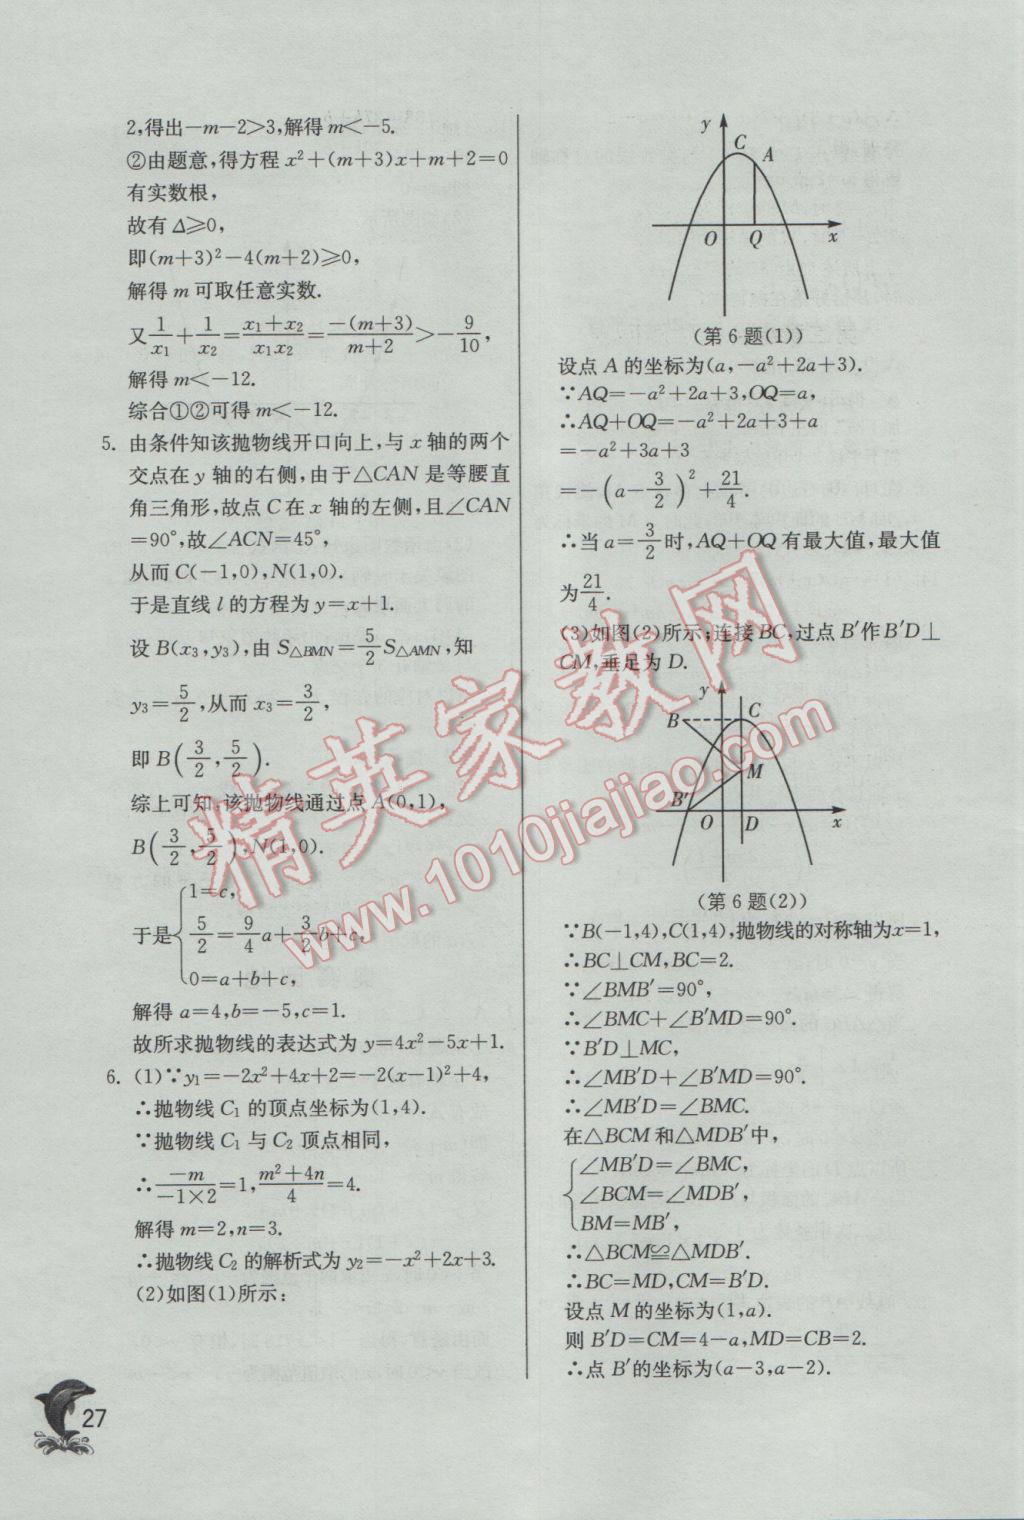 2,得出－m－2＞3,解得 m＜－5.
②由题意,得方程 x²＋(m＋3)x＋m＋2＝0
有实数根,
故有 Δ⩾0,
即(m＋3)²－4(m＋2)⩾0,
解得 m 可取任意实数.
又1/x₁＋1/x₂＝(x₁＋x₂)/(x₁x₂)＝－(m＋3)/(m＋2)＞－9/10,
解得 m＜－12.
综合①②可得 m＜－12.
5. 由条件知该抛物线开口向上,与 x 轴的两个
交点在 y 轴的右侧,由于△CAN 是等腰直
角三角形,故点 C 在 x 轴的左侧,且∠CAN
＝90°,故∠ACN＝45°,
从而 C(－1,0),N(1,0).
于是直线 l 的方程为 y＝x＋1.
设 B(x₃,y₃),由 S△BMN＝5/2 S△AMN,知
y₃＝5/2,从而 x₃＝3/2,
即 B(3/2,5/2).
综上可知,该抛物线通过点 A(0,1),
B(3/2,5/2),N(1,0).
于是{1＝c,
5/2＝9/4 a＋3/2 b＋c,
0＝a＋b＋c,
解得 a＝4,b＝－5,c＝1.
故所求抛物线的表达式为 y＝4x²－5x＋1.
6. (1)∵y₁＝－2x²＋4x＋2＝－2(x－1)²＋4,
∴抛物线 C₁ 的顶点坐标为(1,4).
∵抛物线 C₁ 与 C₂ 顶点相同,
∴－m/(－1×2)＝1,(m²＋4n)/4＝4.
解得 m＝2,n＝3.
∴抛物线 C₂ 的解析式为 y₂＝－x²＋2x＋3.
(2)如图(1)所示:
y C A
O Q x
(第 6 题(1))
设点 A 的坐标为(a,－a²＋2a＋3).
∵AQ＝－a²＋2a＋3,OQ＝a,
∴AQ＋OQ＝－a²＋2a＋3＋a
＝－a²＋3a＋3
＝－(a－3/2)²＋21/4.
∴当 a＝3/2 时,AQ＋OQ 有最大值,最大值
为21/4.
(3)如图(2)所示;连接 BC,过点 B′作 B′D⊥
CM,垂足为 D.
y C
B
M
B′
O D x
(第 6 题(2))
∵B(－1,4),C(1,4),抛物线的对称轴为x＝1,
∴BC⊥CM,BC＝2.
∵∠BMB′＝90°,
∴∠BMC＋∠B′MD＝90°.
∵B′D⊥MC,
∴∠MB′D＋∠B′MD＝90°.
∴∠MB′D＝∠BMC.
在△BCM 和△MDB′中,
{∠MB′D＝∠BMC,
∠BCM＝∠MDB′,
BM＝MB′,
∴△BCM≌△MDB′.
∴BC＝MD,CM＝B′D.
设点 M 的坐标为(1,a).
则 B′D＝CM＝4－a,MD＝CB＝2.
∴点 B′的坐标为(a－3,a－2).
27
精英家教网
www.1010jiajiao.com